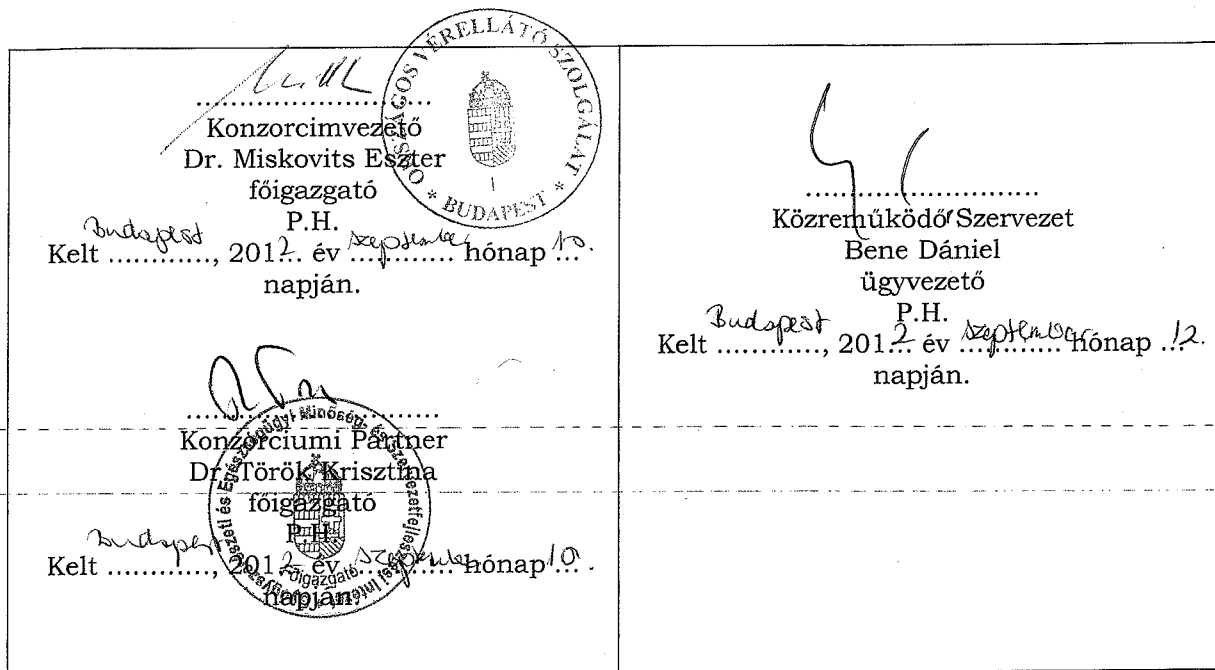 ORSZÁGOS VÉRELLÁTÓ SZOLGÁLAT
* BUDAPEST *
I
..............................
Konzorcimvezető
Dr. Miskovits Eszter
főigazgató
P.H.
Kelt Budapest, 2012. év szeptember hónap 10.
napján.
..............................
Konzorciumi Partner
Dr. Török Krisztina
főigazgató
P.H.
Kelt Budapest, 2012 év szeptember hónap 10.
napján.
Gyógyszerészeti és Egészségügyi Minőség- és Szervezetfejlesztési Intézet
Főigazgató
..............................
Közreműködő Szervezet
Bene Dániel
ügyvezető
P.H.
Kelt Budapest, 2012 év szeptember hónap 12.
napján.